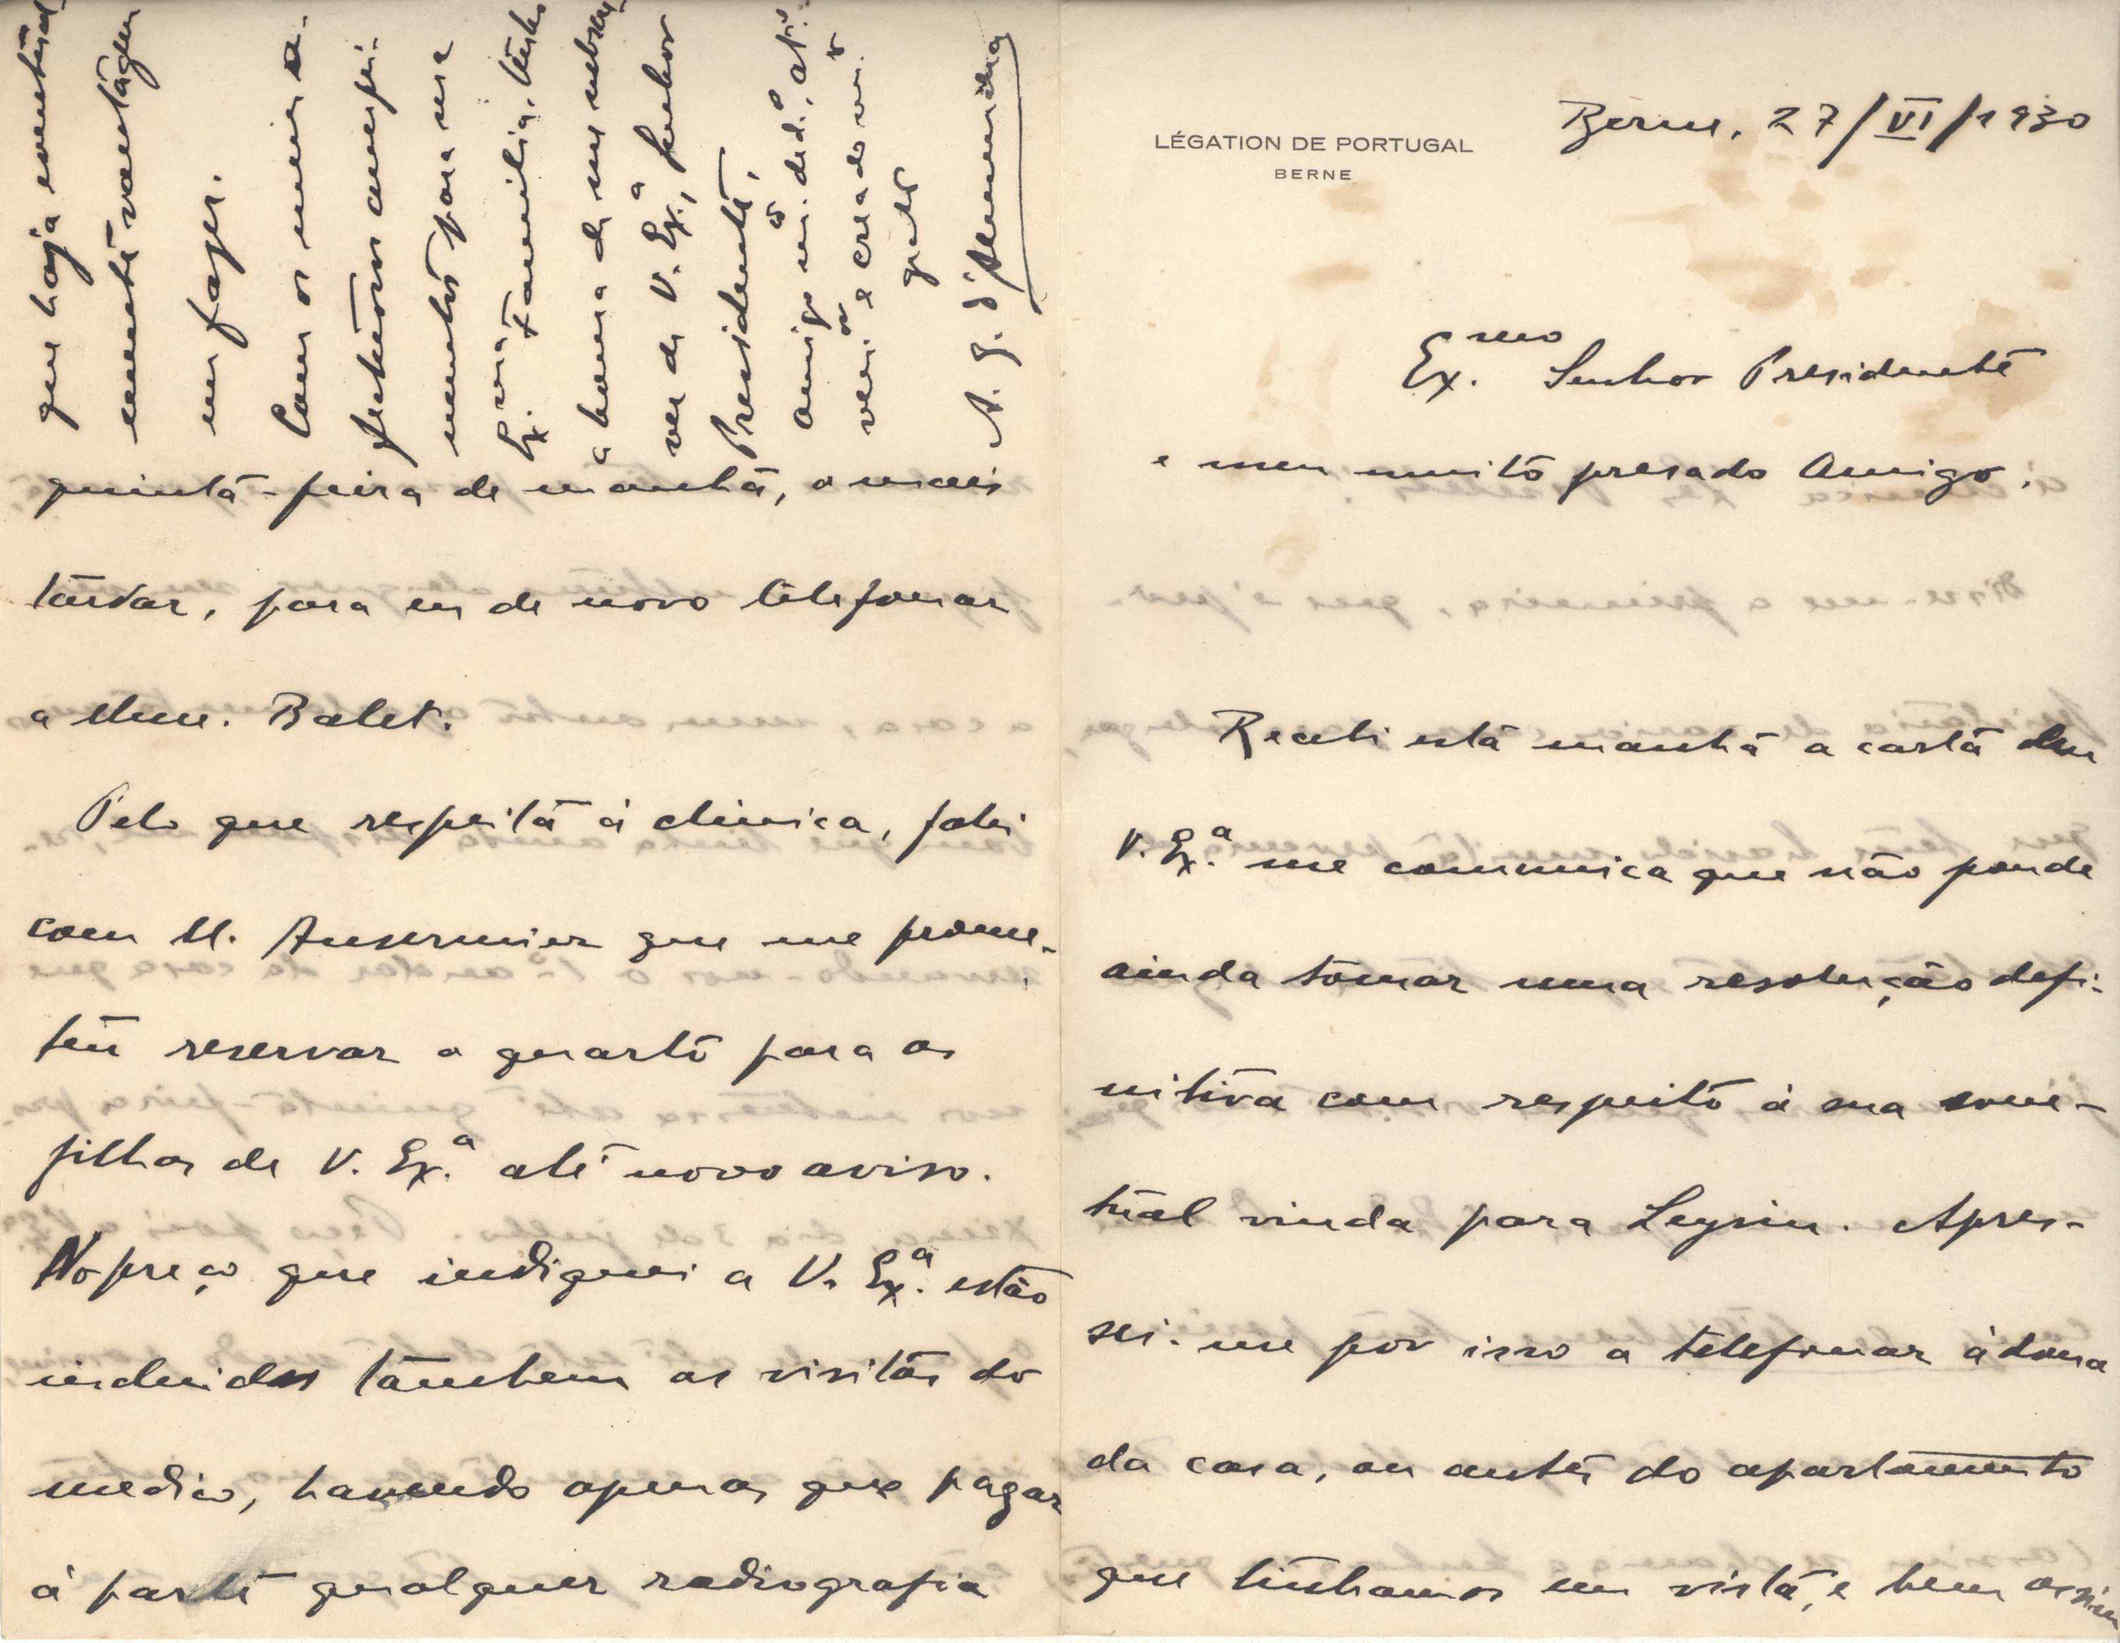 LÉGATION DE PORTUGAL
BERNE
Berne, 27/VI/1930
Ex.mo Senhor Presidente
e meu muito presado Amigo,
Recebi esta manhã a carta em
V. Ex.a me communica que não poude
ainda tomar uma resolução defi-
nitiva com respeito á sua even-
tual vinda para Leysin. Apres-
sei-me por isso a telefonar á dona
da casa, ou antes do apartamento
que tinhamos em vista, e bem assim
quinta-feira de manhã, o mais
tardar, para eu de novo telefonar
a Mme. Balet.
Pelo que respeita á clinica, falei
com M. Ansermier que me prome-
teu reservar o quarto para os
filhos de V. Ex.a até novo aviso.
No preço que indiquei a V. Ex.a estão
incluidas tambem as visitas do
medico, havendo apenas que pagar
á parte qualquer radiografia
que haja eventual
mente vantagem
em fazer.
Com os meus
respeitosos cumpri-
mentos para sua
Ex.ma Familia, tenho
a honra de me subscre-
ver de V. Ex.a, Senhor
Presidente,
amigo m.to ded.o, at.o
ven.or e creado m.to
grato
A. J. d'Almeida